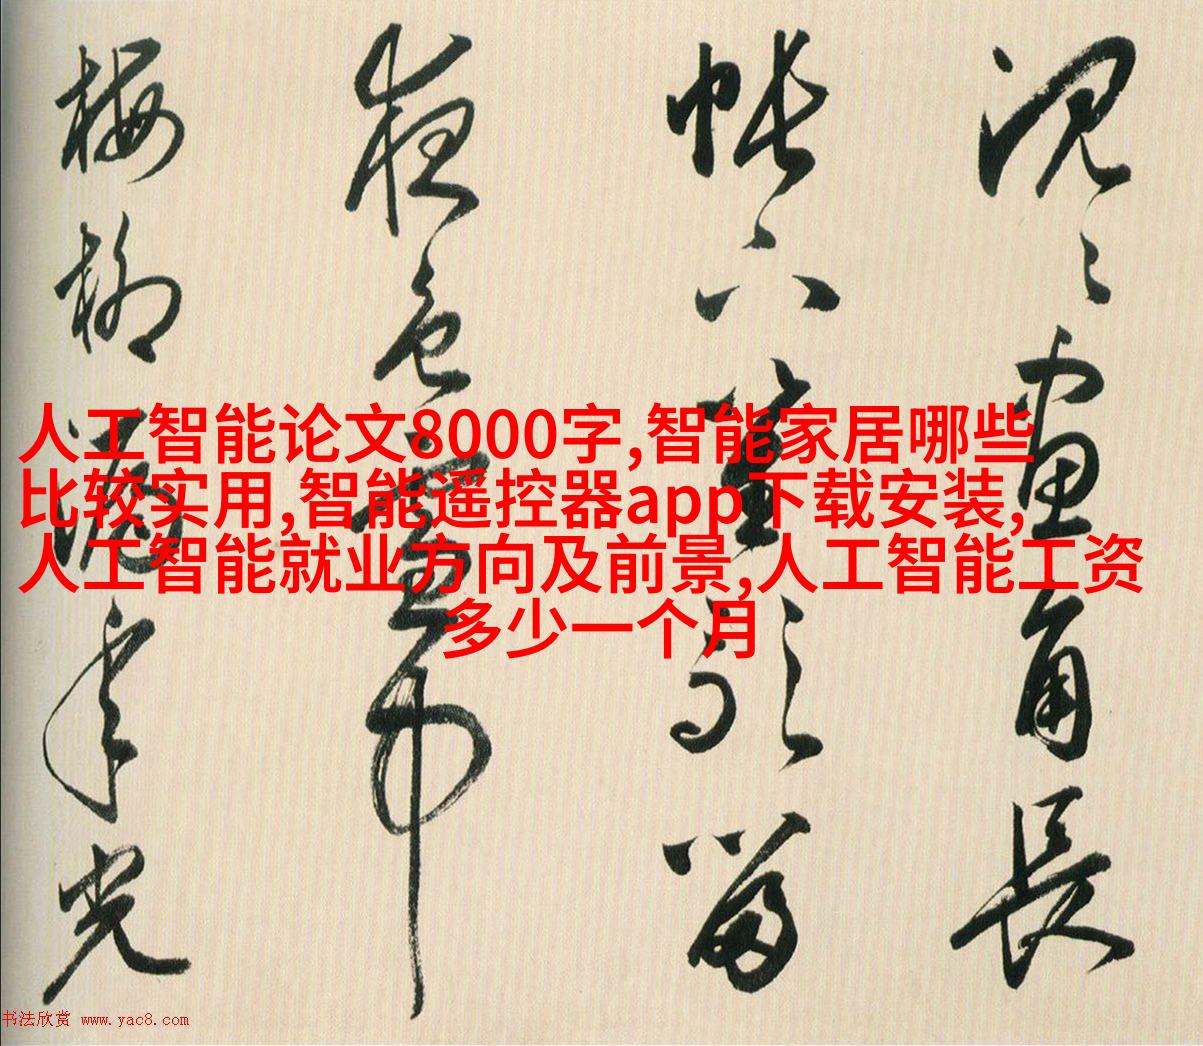 人工智能论文8000字,智能家居哪些
比较实用,智能遥控器app下载安装,
人工智能就业方向及前景,人工智能工资
多少一个月
畫角長
帐六留
夜色
梅柳年光
书法欣赏 www.yac8.com